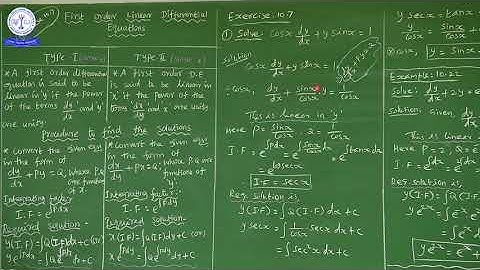 First Order Linear Differential
Equations
TYPE I
TYPE II
* A first order differential
equation is said to be
linear in y if the power of
the terms dy/dx and y are
one unity.
* A first order D.E
is said to be linear in
x if the power of the
terms dx/dy and x are one
unity
Procedure to find the solutions
* Convert the given eqn
in the form of
dy/dx + Py = Q, where P, Q
are function
* Convert the given eqn
in the form of
dx/dy + Px = Q, where P, Q are
functions of
y.
Integrating factor:
I.F = e^∫Pdx
Integrating factor:
I.F = e^∫Pdy
Required solution
y(I.F) = ∫Q(I.F)dx+c (or)
y e^∫Pdx = ∫Q e^∫Pdx dx+c
Required solution
x(I.F) = ∫Q(I.F)dy+c (or)
x e^∫Pdy = ∫Q e^∫Pdy dy+c
Exercise: 10.7
① Solve: cosx dy/dx + y sinx = 1
Solution
cosx dy/dx + y sinx = 1
÷ cosx, dy/dx + sinx/cosx y = 1/cosx
This is linear in 'y'
Here P = sinx/cosx, Q = 1/cosx
I.F = e^∫Pdx = e^∫sinx/cosx dx = e^∫tanx dx
= e^logsecx
I.F = secx
Req. solution is,
y(I.F) = ∫Q(I.F) dx + c
y secx = ∫1/cosx secx dx + c
= ∫sec²x dx + c
y secx = tanx
÷ secx,
y = sinx
Example: 10.22
Solve: dy/dx + 2y = e
Solution: Given, dy/dx
This is
Here P = 2, Q = e
I.F = e^∫Pdx
Req. solution is
y(I.F) = ∫Q
y e^2x = ∫e^-x e
y e^2x = e^x